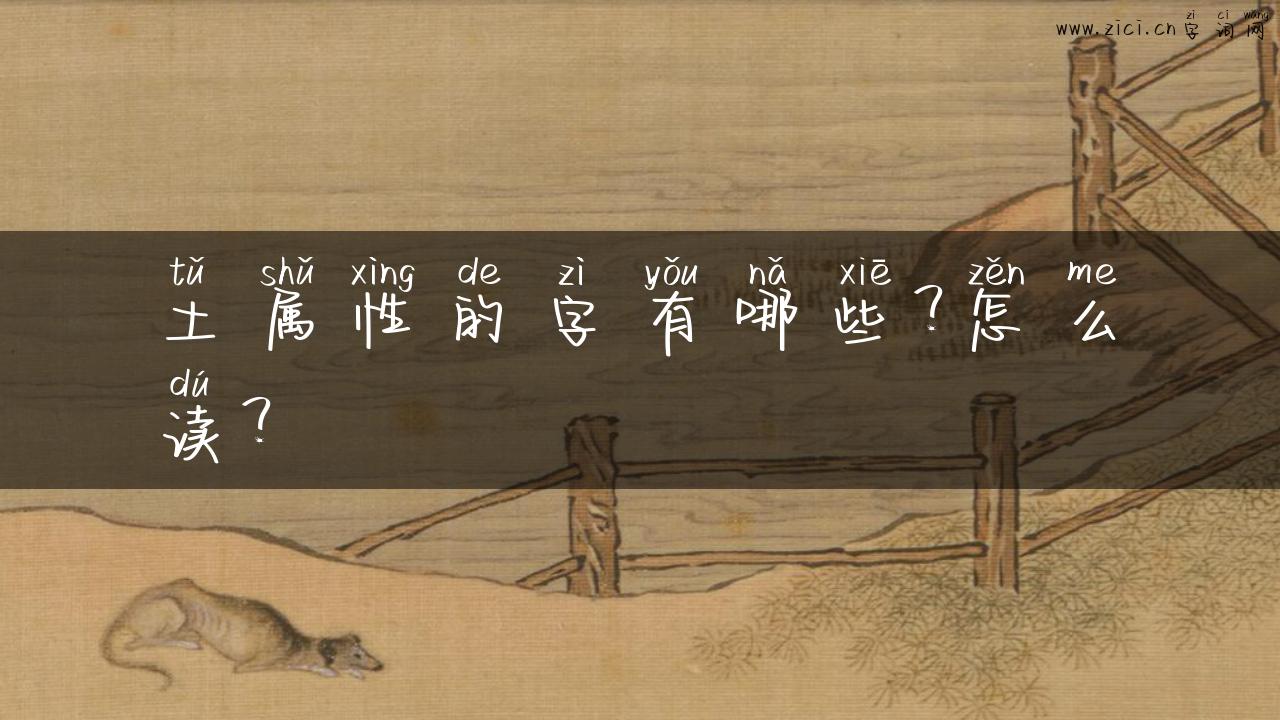 zì cí wǎng
www.zici.cn字词网
tǔ shǔ xìng de zì yǒu nǎ xiē zěn me
土属性的字有哪些?怎么
dú
读?